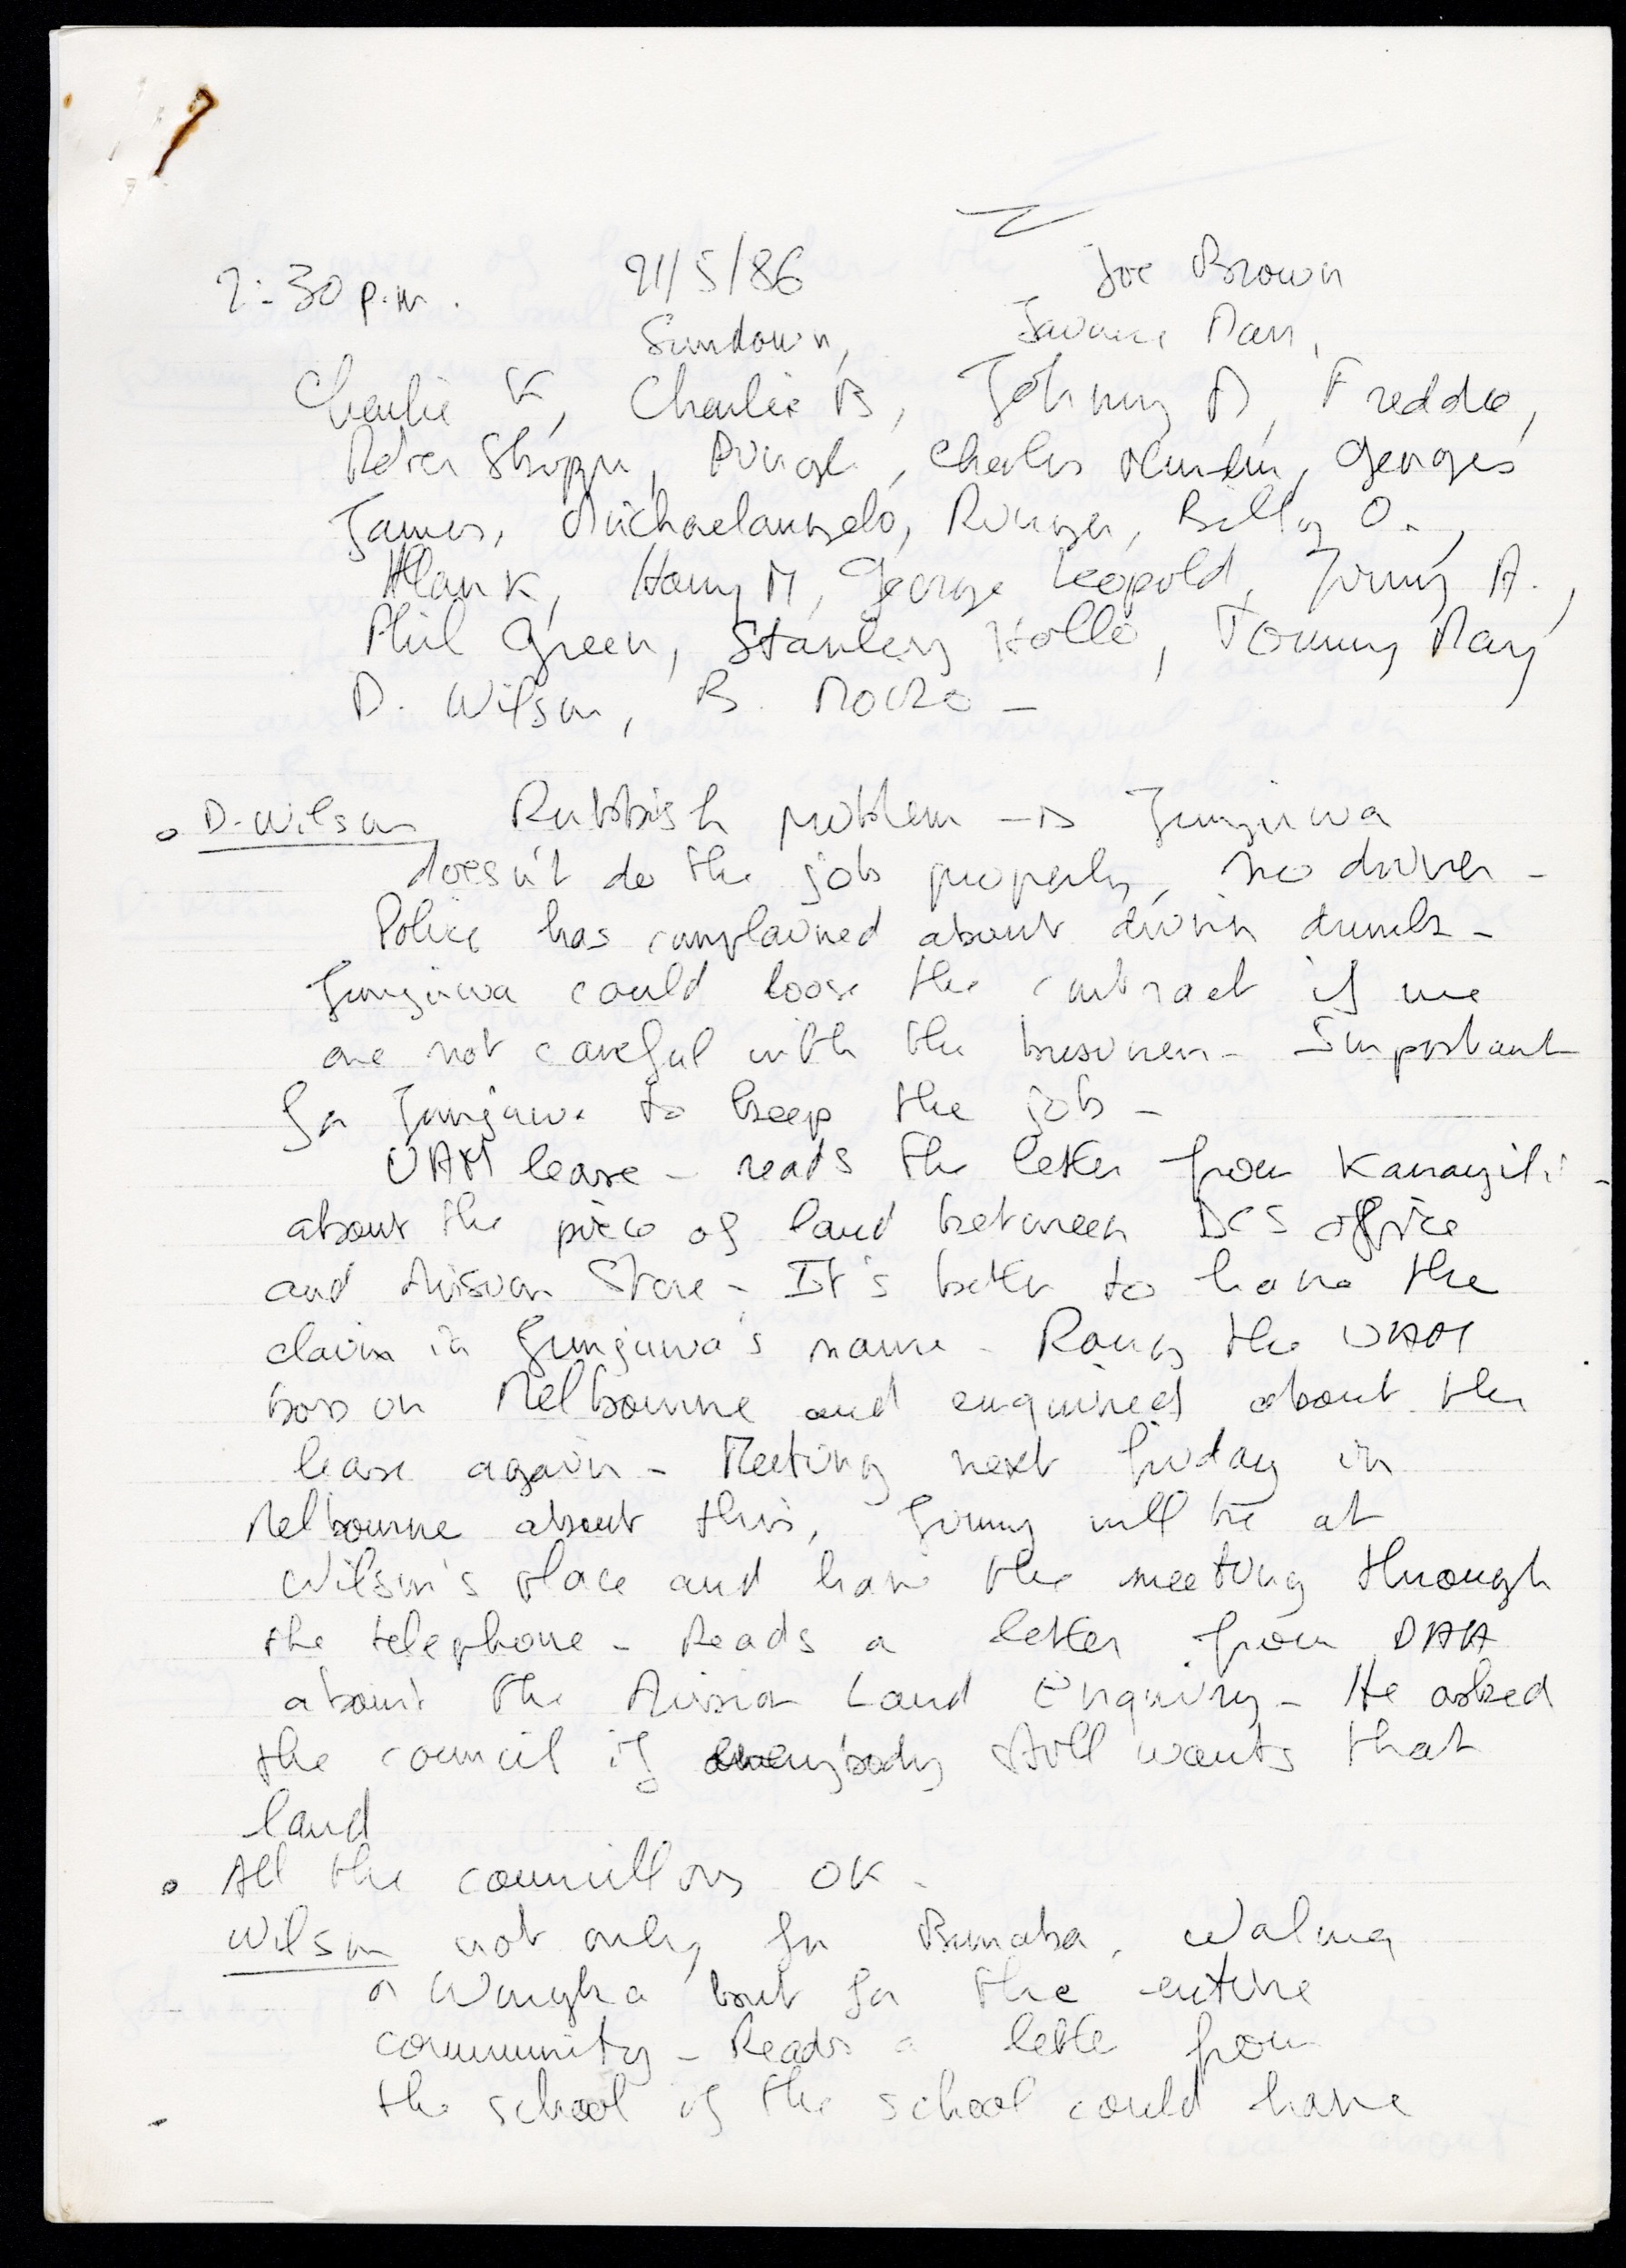 2:30 p.m. 21/5/86 Joe Brown
Sundown,
Charlie K, Charlie B, Johnny D, Freddie,
Peter Skipper, Charles, Georges
James, Michaelangelo, Billy O.,
Alan K, Harry M, George Leopold, Jimmy A.,
Phil Green, Stanley Holló, Tommy May
D. Wilson, B. Moizo -
D. Wilson Rubbish problem → Junjuwa
doesn't do the job properly, no driver -
Police has complained about drivin drunk -
Junjuwa could loose the contract if we
are not careful with the business - Important
for Junjuwa to keep the job -
UAM lease - reads the letter from Karrayili -
about the piece of land between DCS office
and Mission Store - It's better to have the
claim in Junjuwa's name - Rang the UAM
boss in Melbourne and enquired about the
lease again - Meeting next friday in
Melbourne about this, Jimmy will be at
Wilson's place and have the meeting through
the telephone - Reads a letter from DAA
about the Mission Land Enquiry - He asked
the council if everybody still wants that
land
All the councillors OK -
Wilson not only for Bunaba, Walma
or Wangka but for the entire
community - Reads a letter from
the school if the school could have